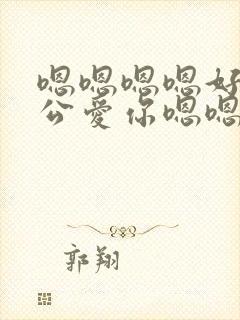 嗯嗯嗯嗯好
公爱你嗯嗯
郭翔